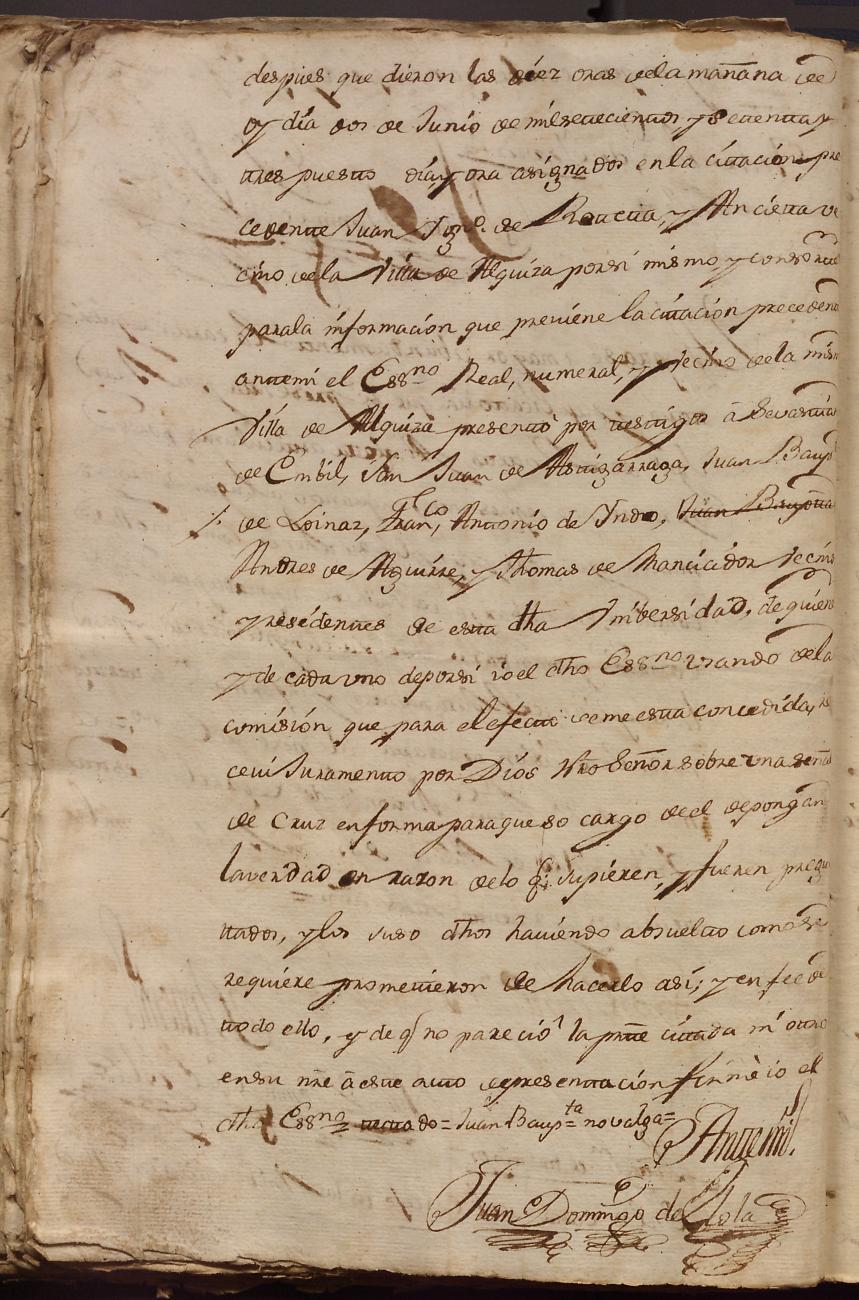 despues que dieron las diez oras dela mañana de
oy dia dos de Junio de mil setecientos y setentta y
ttres puestto dia, y ora asignados en la cittacion pre
cedentte Juan Ig.º de y Anciétta ve
cino dela Villa de Alquiza por si mismo, y consortte
para la informacion que previene la cittacion precedente
antte mi el Essno Real, numeral, y vecino de la misma
Villa de Alquiza presentto por testigos â Sevastian
de Embil, San Juan de Astigarraga, Juan Baup
de Loinaz, Franco, Anttonio de Yndo, Juan Bauptta
Andres de Aguirre, y Thomas de Mancicidor vecinos
y residenttes de estta dha Vniversidad, de quienes
y de cada vno de por si io el dho Essno vsando dela
comision que para el efectto se me estta concedida, re
ceui Juramentto por Dios Nro Señor sobre vna señal
de Cruz en forma para que so cargo de el depongan
la verdad en razon delo q. supieren, y fueren pregun
ttados, y los suso dhos haviendo absueltto como se
requiere promettieron de hacerlo asi; y en fee de
ttodo ello, y de q no pareció la partte cittada ni ottro
en su nre â estte autto de presenttacion firmè io el
dho Essno = = Juan Baupta = no valga =
Antemi
Juan Domingo de